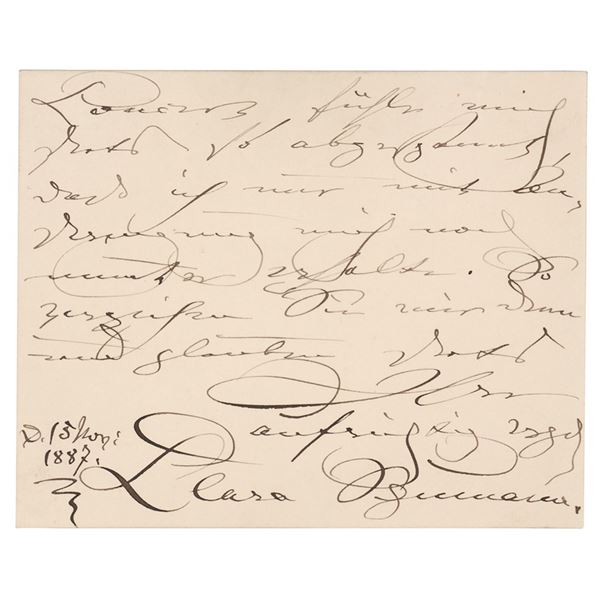 Concerts fühle mich
stets so abgespannt,
daß ich nur mit An-
strengung mich noch
munter erhalte. So
verzeihen Sie mir denn
und glauben stets
Ihrer
aufrichtig ergeb
Clara Schumann.
D. 15 Nov:
1887.